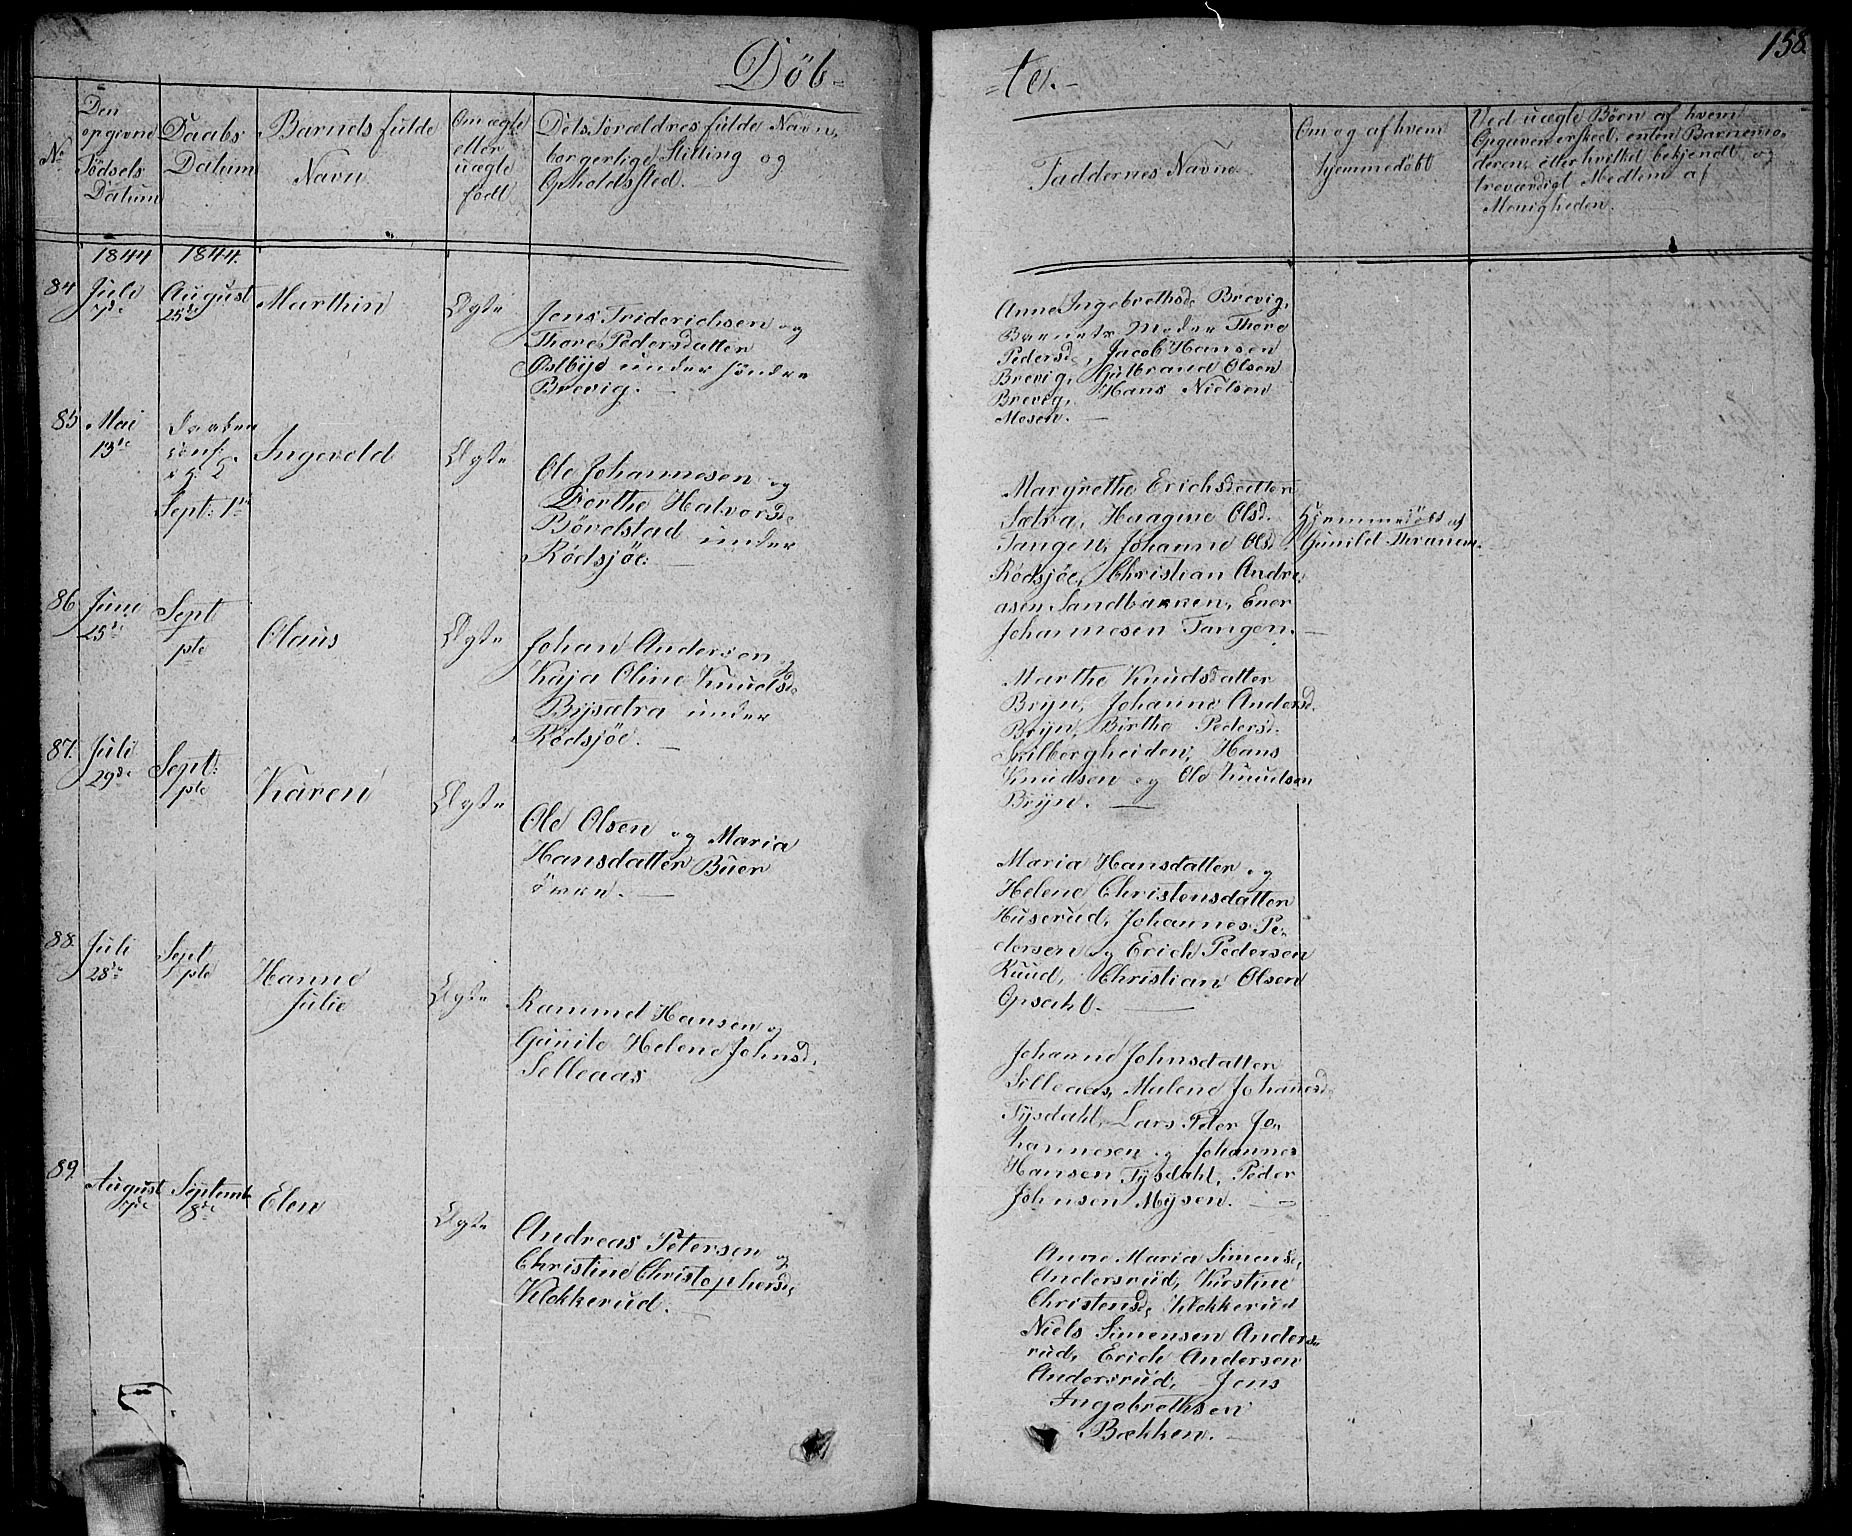 Døb-
-te.-
158.
No
Den
opgivne
Fødsels
Datum
Daabs
Datum
Barnets fulde
Navn
Om ægte
eller
uægte
født
Dets Forældres fulde Navn,
borgerlige Stilling og
Opholdssted.
Faddernes Navne
Om og af hvem
hjemmedøbt
Ved uægte Børn af hvem
Opgaven er skeet, enten Barnemo-
deren eller hvilket bekjendt og
troværdigt Medlem af
Menigheden.
1844
1844.
84.
Juli
7de
August
25de
Marthin
Ægte
Jens Friderichsen og
Thore Pedersdatter
Østbye under søndre
Brevig.
Anne Ingebrethsd. Brevig,
Barnets Moder Thore
Pedersd., Jacob Hansen
Brevig, Gulbrand Olsen
Brevig, Hans Nielsen
Mosen.
85.
Mai
13de
Daaben
conf:
Sept: 1te
Ingevold
Ægte
Ole Johannesen og
Dorthe Halvorsd.
Børdstad under
Rødsjøe.
Margrethe Erichsdatter
Sætra, Haagine Olsd.
Tangen, Johanne Olsd
Rødsjøe, Christian Andre-
asen Sandbakken, Ener
Johannesen Tangen.
Hjemmedøbt af
Gunild Thranem.
86.
Juni
25de
Sept
1ste
Olaus
Ægte
Johan Andersen og
Kaja Oline Knudsd.
Bysætra under
Rødsjøe.
Marthe Knudsdatter
Bryn, Johanne Andersd.
Bryn, Birthe Pedersd.
Skilbergheiden, Hans
Knudsen og Ole Knudsen
Bryn.
87.
Juli
29de
Sept:
1ste
Karen
Ægte
Ole Olsen og Maria
Hansdatter Buer
Maria Hansdatter og
Helene Christensdatter
Huserud, Johannes Pe-
dersen og Erich Pedersen
Ruud, Christian Olsen
Opsahl.
88.
Juli
28de
Sept
1ste
Hanne
Julie
Ægte
Rammel Hansen og
Gunile Helene Johnsd.
Selleaas
Johanne Johnsdatter
Silleaas, Malene Johannesd.
Tysdahl, Lars Peter Jo-
hannesen og Johannes
Hansen Tysdahl, Peder
Johnsen Mysen.
89.
August
7de
Septemb.
8de
Elen
Ægte
Andreas Petersen og
Christine Christophersd.
Klokkerud.
Anne Maria Simensd.
Andersrud, Kirstine
Christensd. Klokkerud
Niels Simensen Anders-
rud, Erich Andersen
Andersrud, Jens
Ingebrethsen
Bækken.